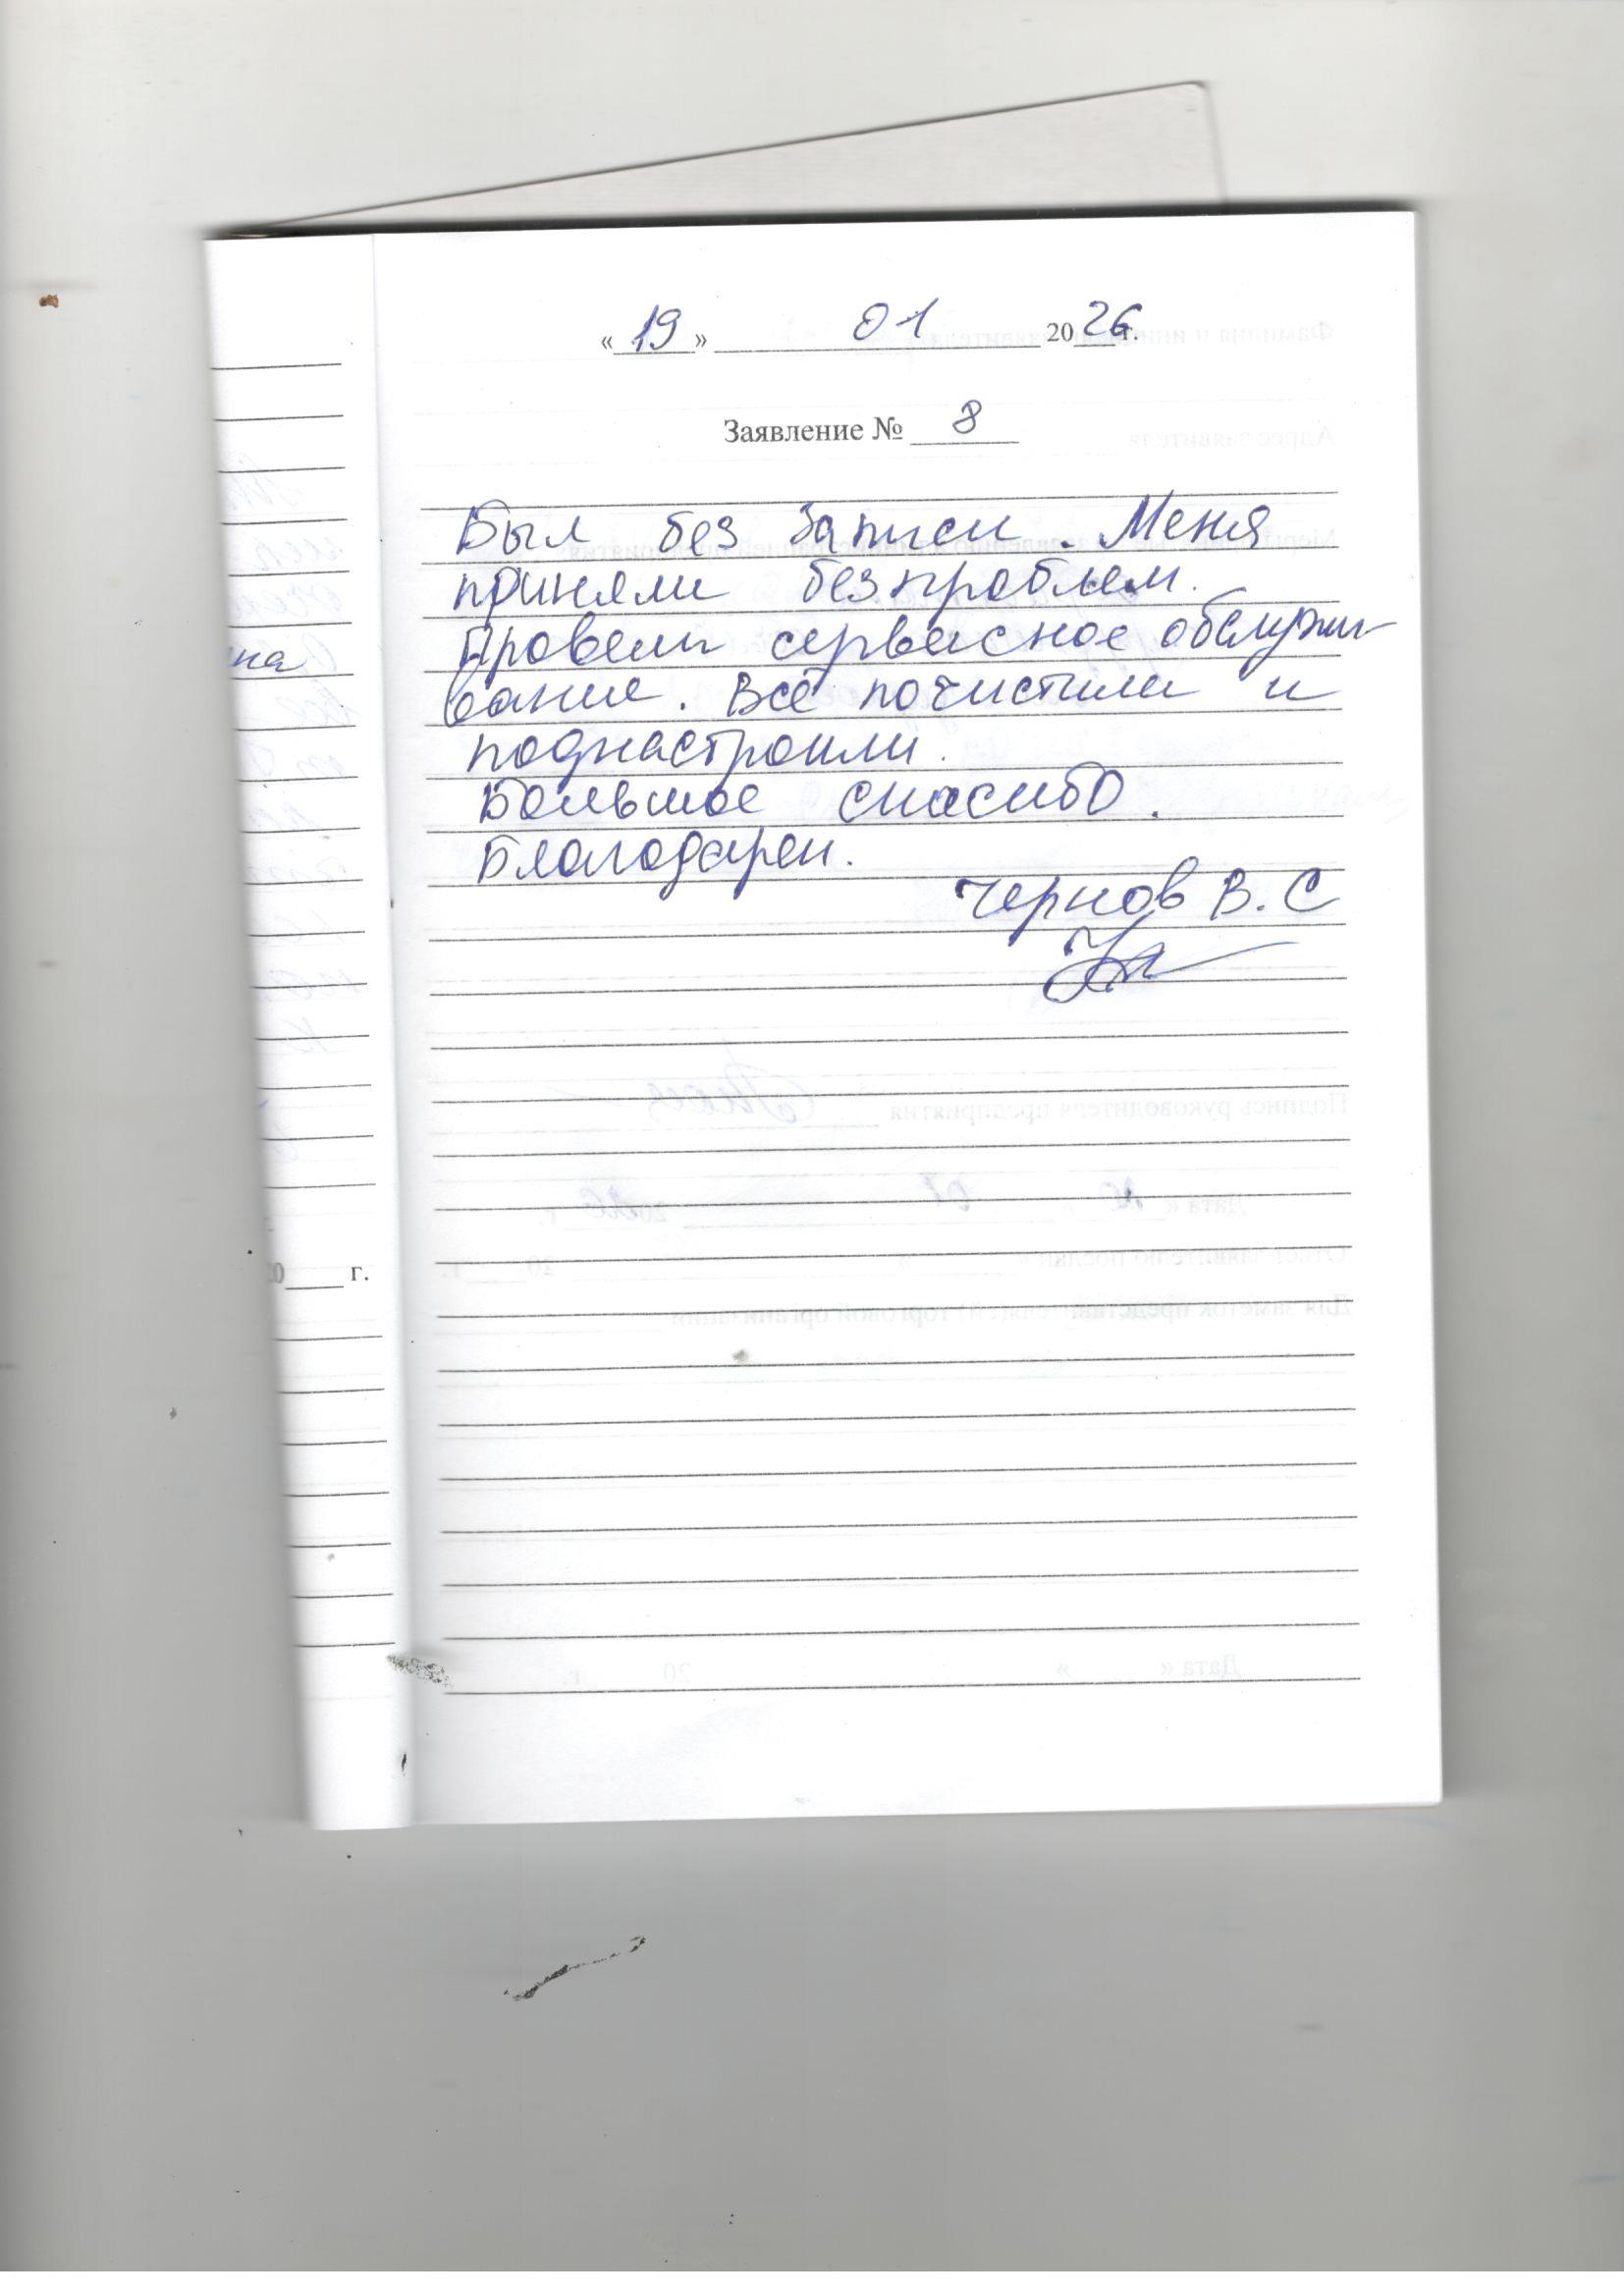 «19» 01 2026г.
Заявление № 8
Был без записи. Меня
приняли без проблем.
Провели сервисное обслужи-
вание. Всё почистили и
поднастроили.
Большое спасибо.
Благодарен.
Чернов В. С
на
20 г.